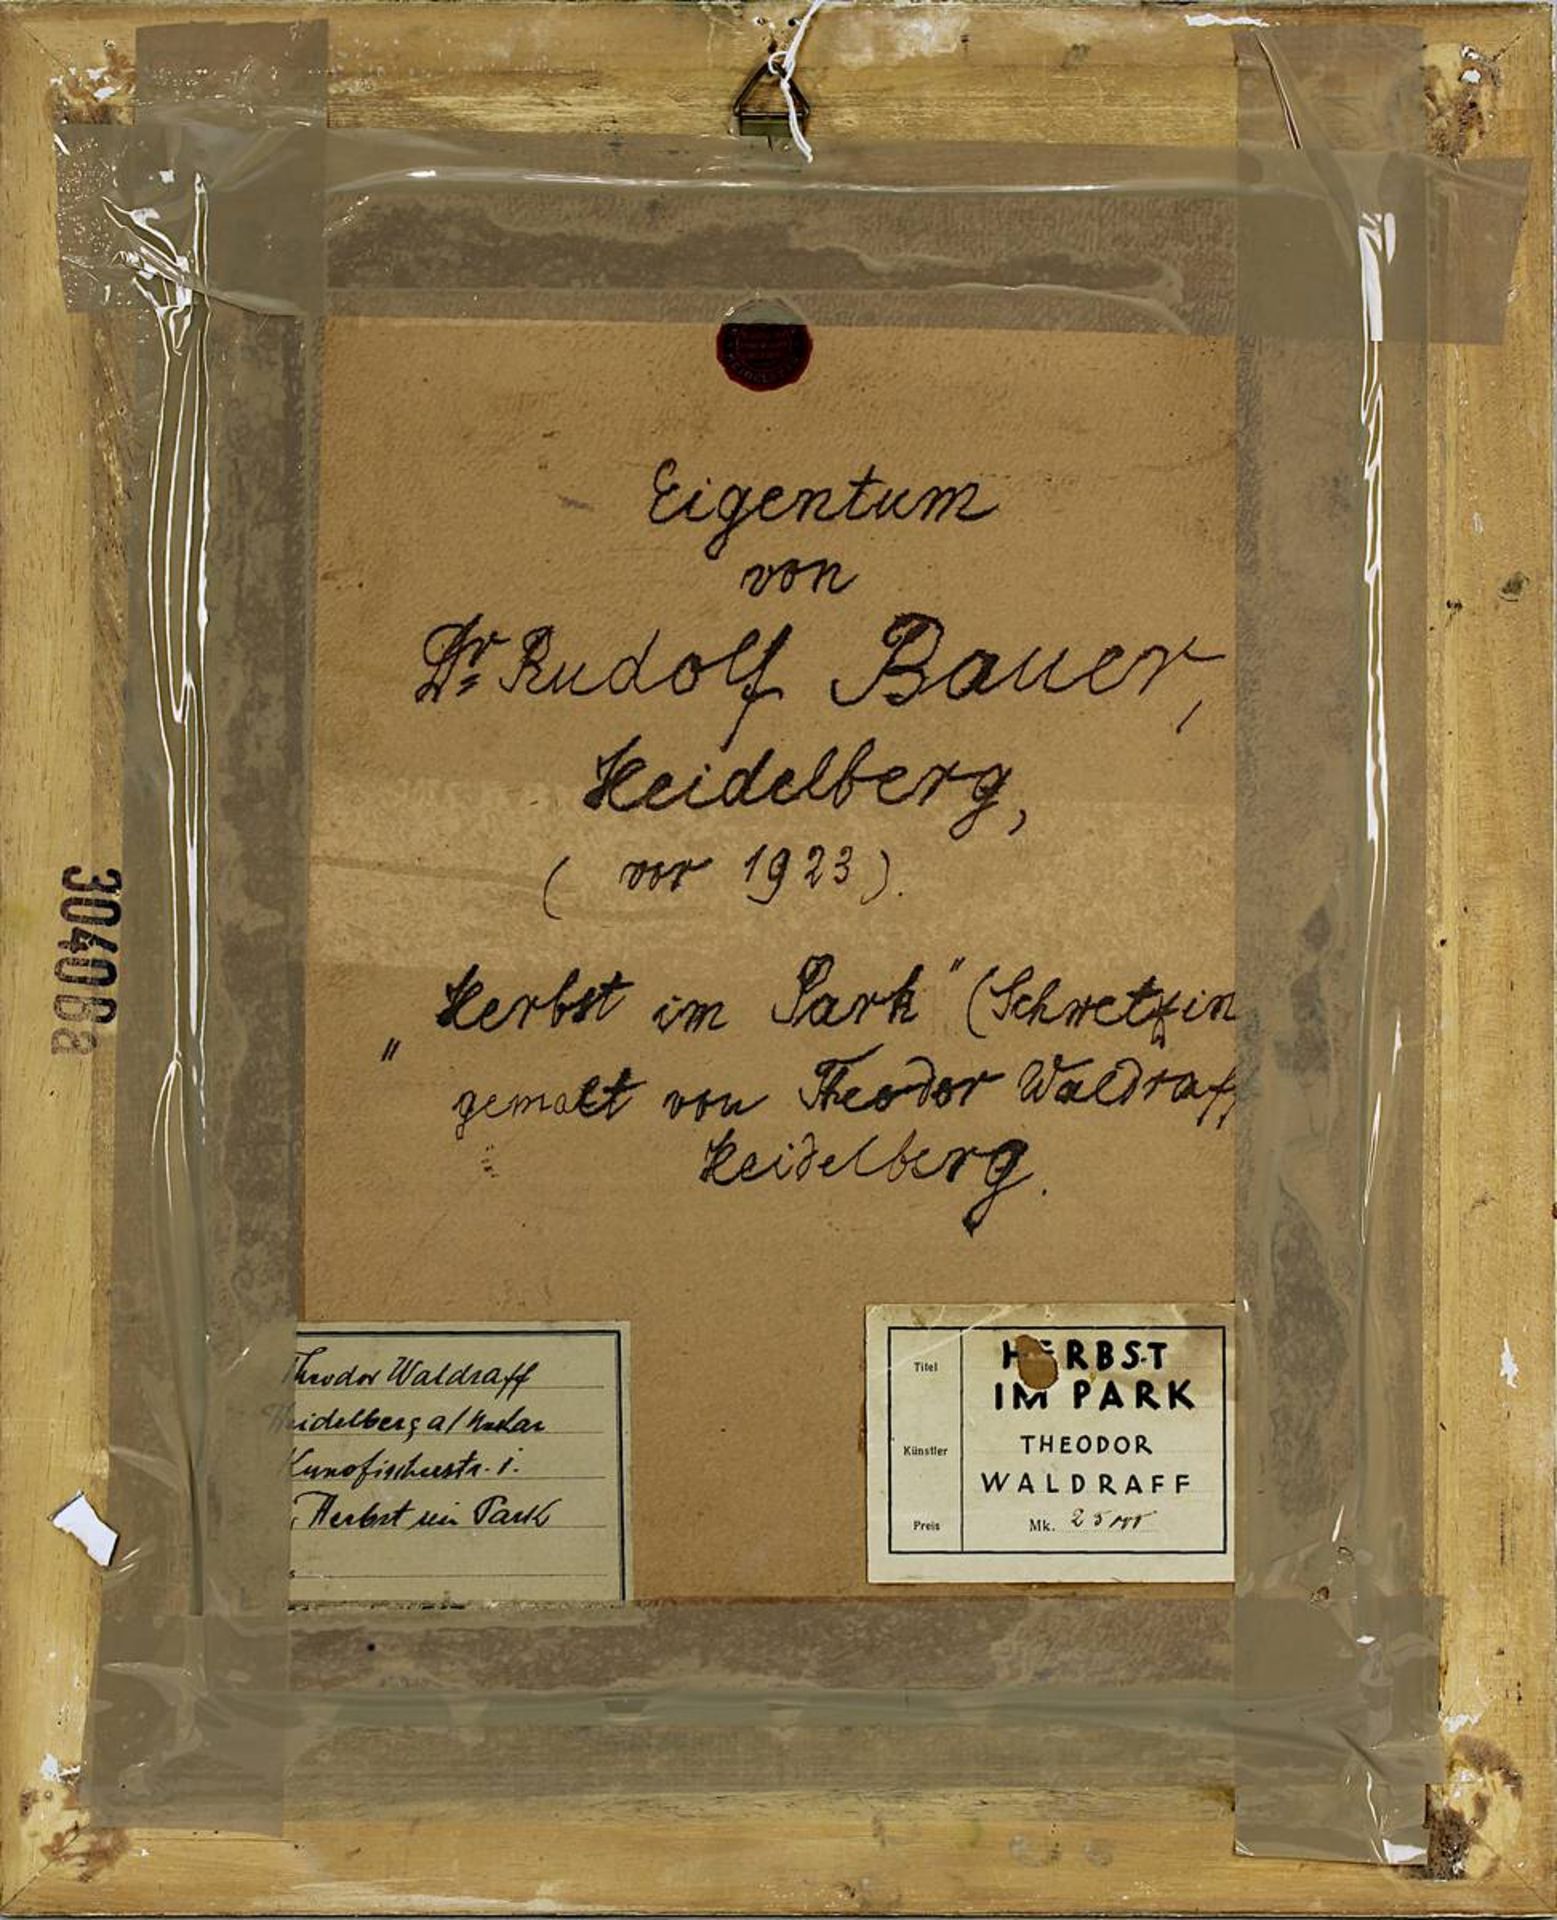 Eigentum
von
Dr. Rudolf Bauer,
Heidelberg,
( vor 1923).
„Herbst im Park" (Schwetzin
gemalt von Theodor Waldraff
Heidelberg.
304068
Theodor Waldraff
Heidelberg a/Neckar
Kunofischerstr. 1.
Herbst im Park
Titel HERBST
IM PARK
Künstler THEODOR
WALDRAFF
Preis Mk. 25